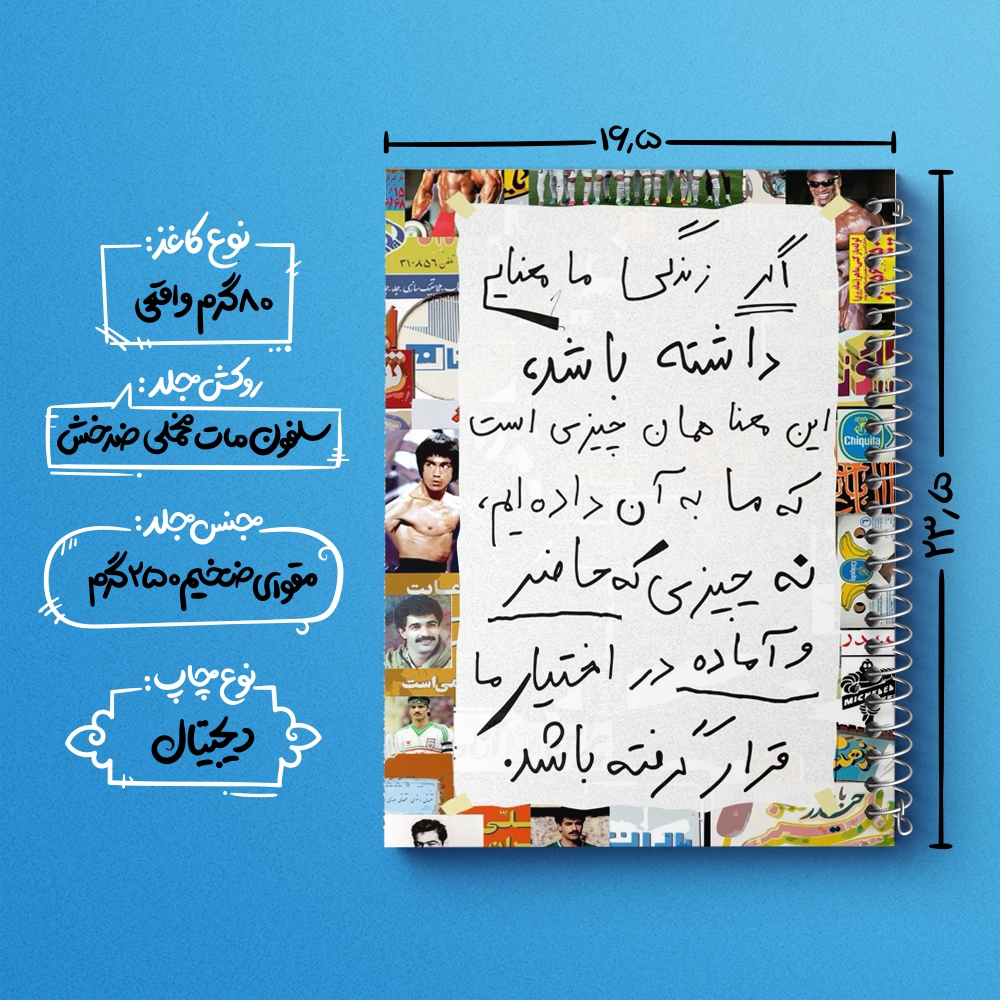 ۱۶٫۵
۲۳٫۵
نوع کاغذ:
۸۰گرم واقعی
روکش جلد:
سلفون مات مخملی ضدخش
جنس جلد:
مقوای ضخیم ۲۵۰گرم
نوع چاپ:
دیجیتال
اگر زندگی ما معنایی
داشته باشد،
این معنا همان چیزی است
که ما به آن داده‌ایم،
نه چیزی که حاضر
و آماده در اختیار ما
قرار گرفته باشد.
تلفن ۳۱۰۸۵۶
Chiquita
MICHELIN